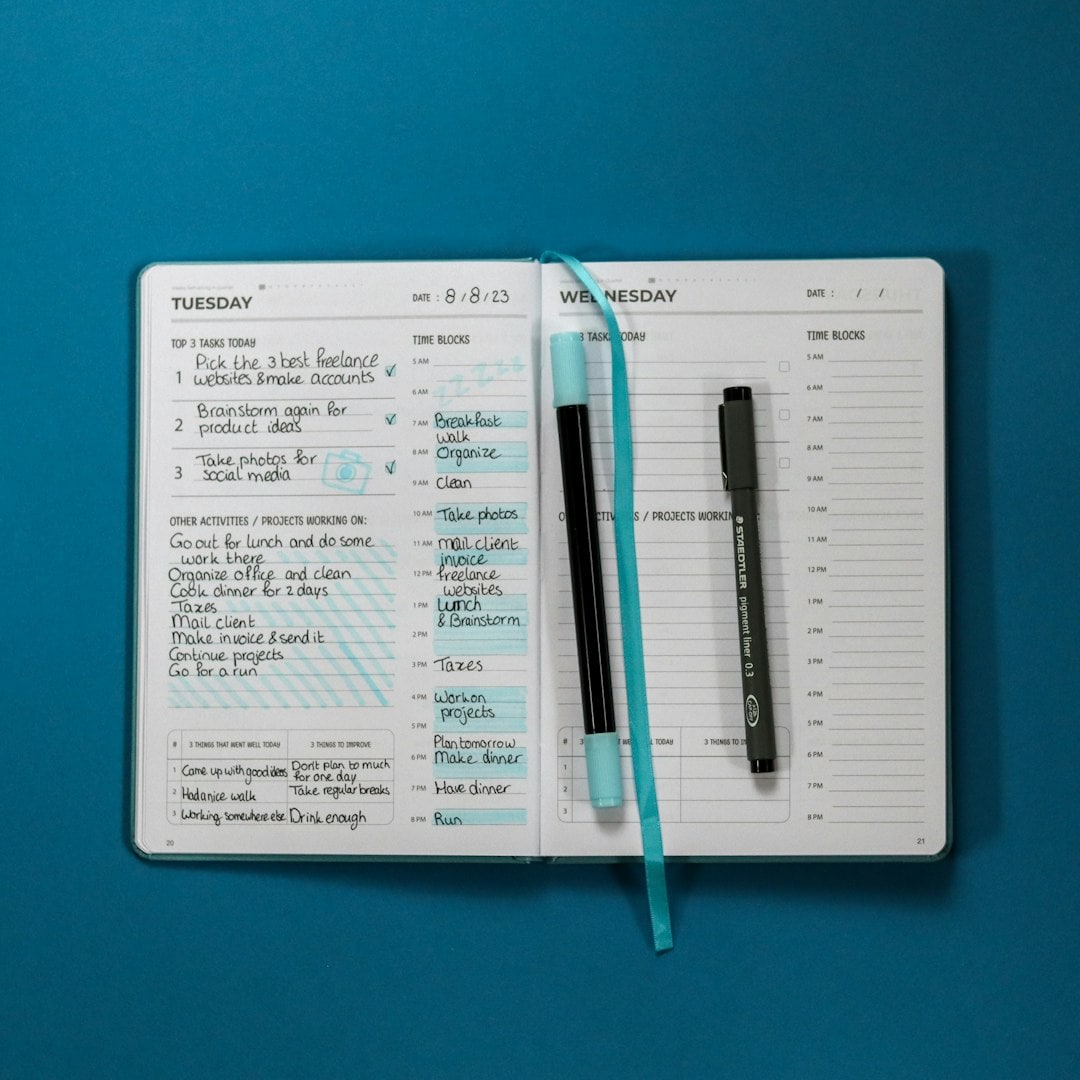 TUESDAY
DATE : 8 / 8 / 23
TOP 3 TASKS TODAY
1 Pick the 3 best freelance
websites & make accounts
2 Brainstorm again for
product ideas
3 Take photos for
social media
OTHER ACTIVITIES / PROJECTS WORKING ON:
Go out for lunch and do some
work there
Organize office and clean
Cook dinner for 2 days
Taxes
Mail client
Make invoice & send it
Continue projects
Go for a run
# 3 THINGS THAT WENT WELL TODAY 3 THINGS TO IMPROVE
1 Came up with good ideas Don't plan to much
for one day
2 Had a nice walk Take regular breaks
3 Working somewhere else Drink enough
20
TIME BLOCKS
5 AM ZZZZZ
6 AM
7 AM Breakfast
walk
8 AM Organize
9 AM Clean
10 AM Take photos
11 AM mail client
invoice
12 PM freelance
websites
1 PM Lunch
& Brainstorm
2 PM
3 PM Taxes
4 PM Work on
projects
5 PM
Plan tomorrow
6 PM Make dinner
7 PM Have dinner
8 PM Run
WEDNESDAY
DATE : / /
3 TASKS TODAY
ACTIVITIES / PROJECTS
# WELL TODAY 3 THINGS
1
2
3
TIME BLOCKS
5 AM
6 AM
7 AM
8 AM
9 AM
10 AM
11 AM
12 PM
1 PM
2 PM
3 PM
4 PM
5 PM
6 PM
7 PM
8 PM
21
STAEDTLER pigment liner 0.3